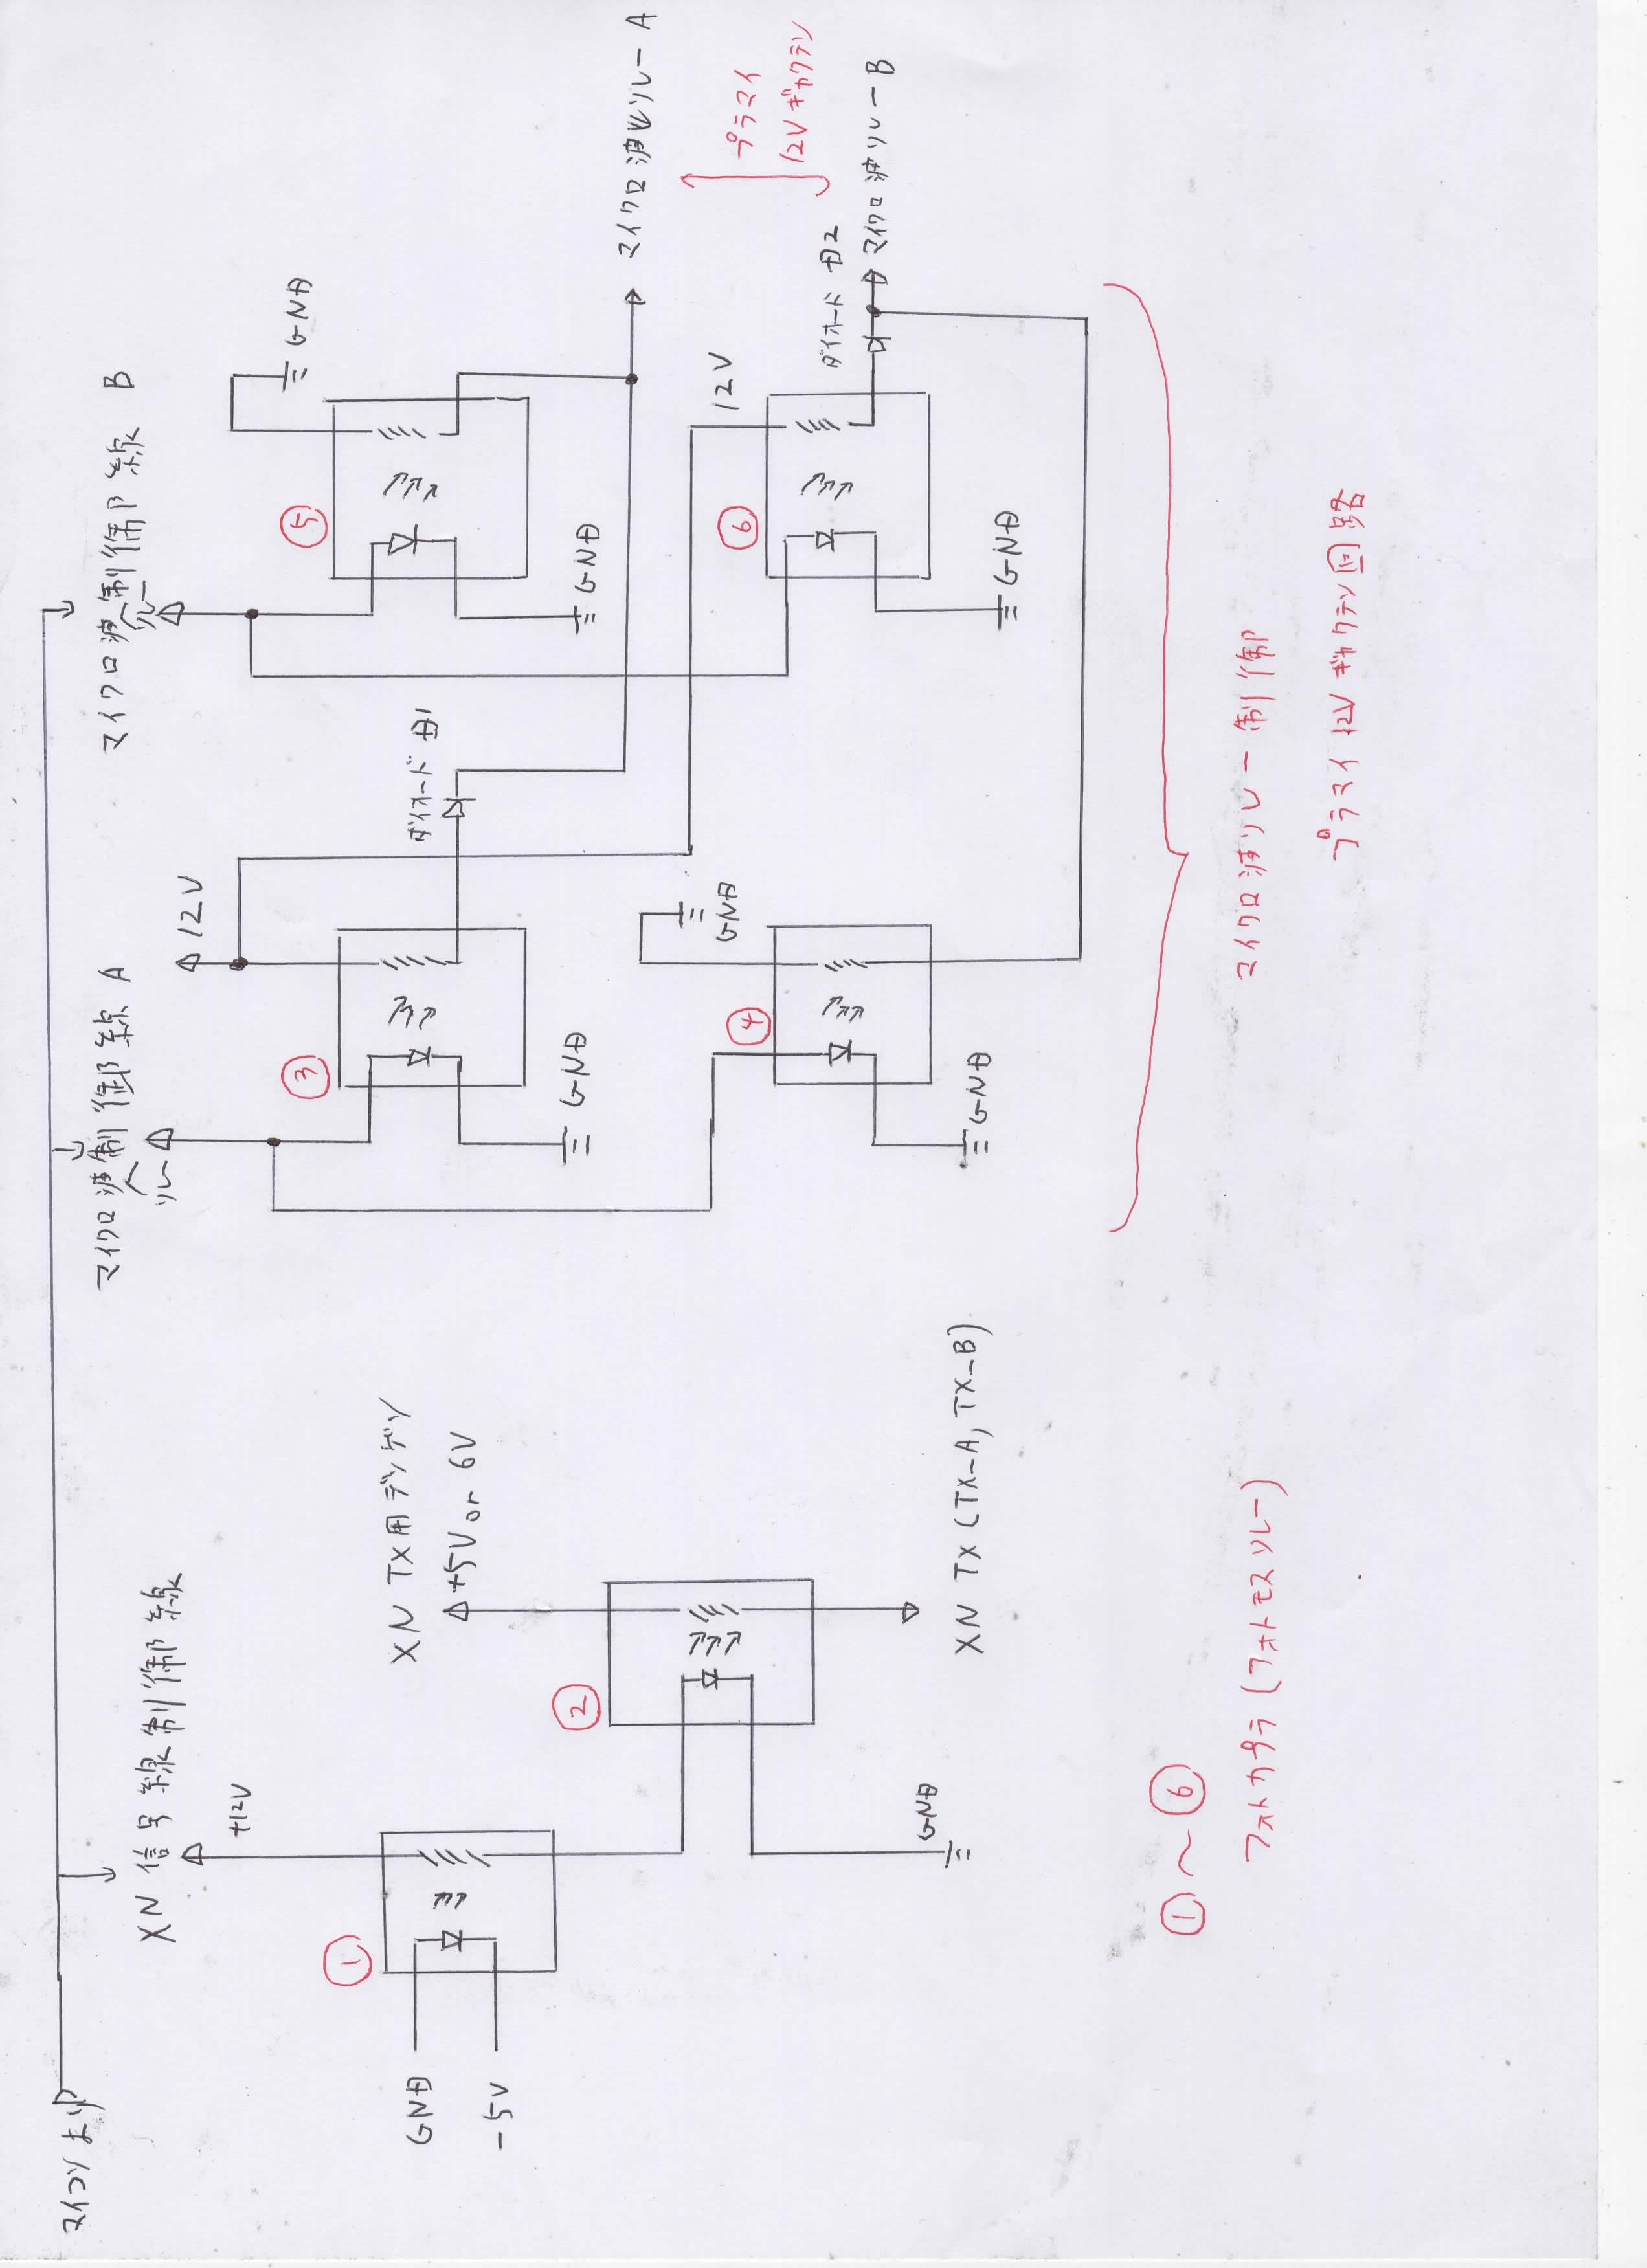 マイコンより
XN 信号線制御線
マイクロ波制御線 A
リレー
マイクロ波制御線 B
リレー
+12V
12V
GND
XN TX用デンゲン
+5V or 6V
ダイオード D1
①
②
③
④
⑤
⑥
GND
-5V
GND
GND
GND
GND
GND
GND
12V
ダイオード D2
マイクロ波リレー A
プラマイ
12Vギャクテン
マイクロ波リレー B
XN TX (TX-A, TX-B)
①〜⑥
フォトカプラ (フォトモスリレー)
マイクロ波リレー制御
プラマイ 12V ギャクテン回路